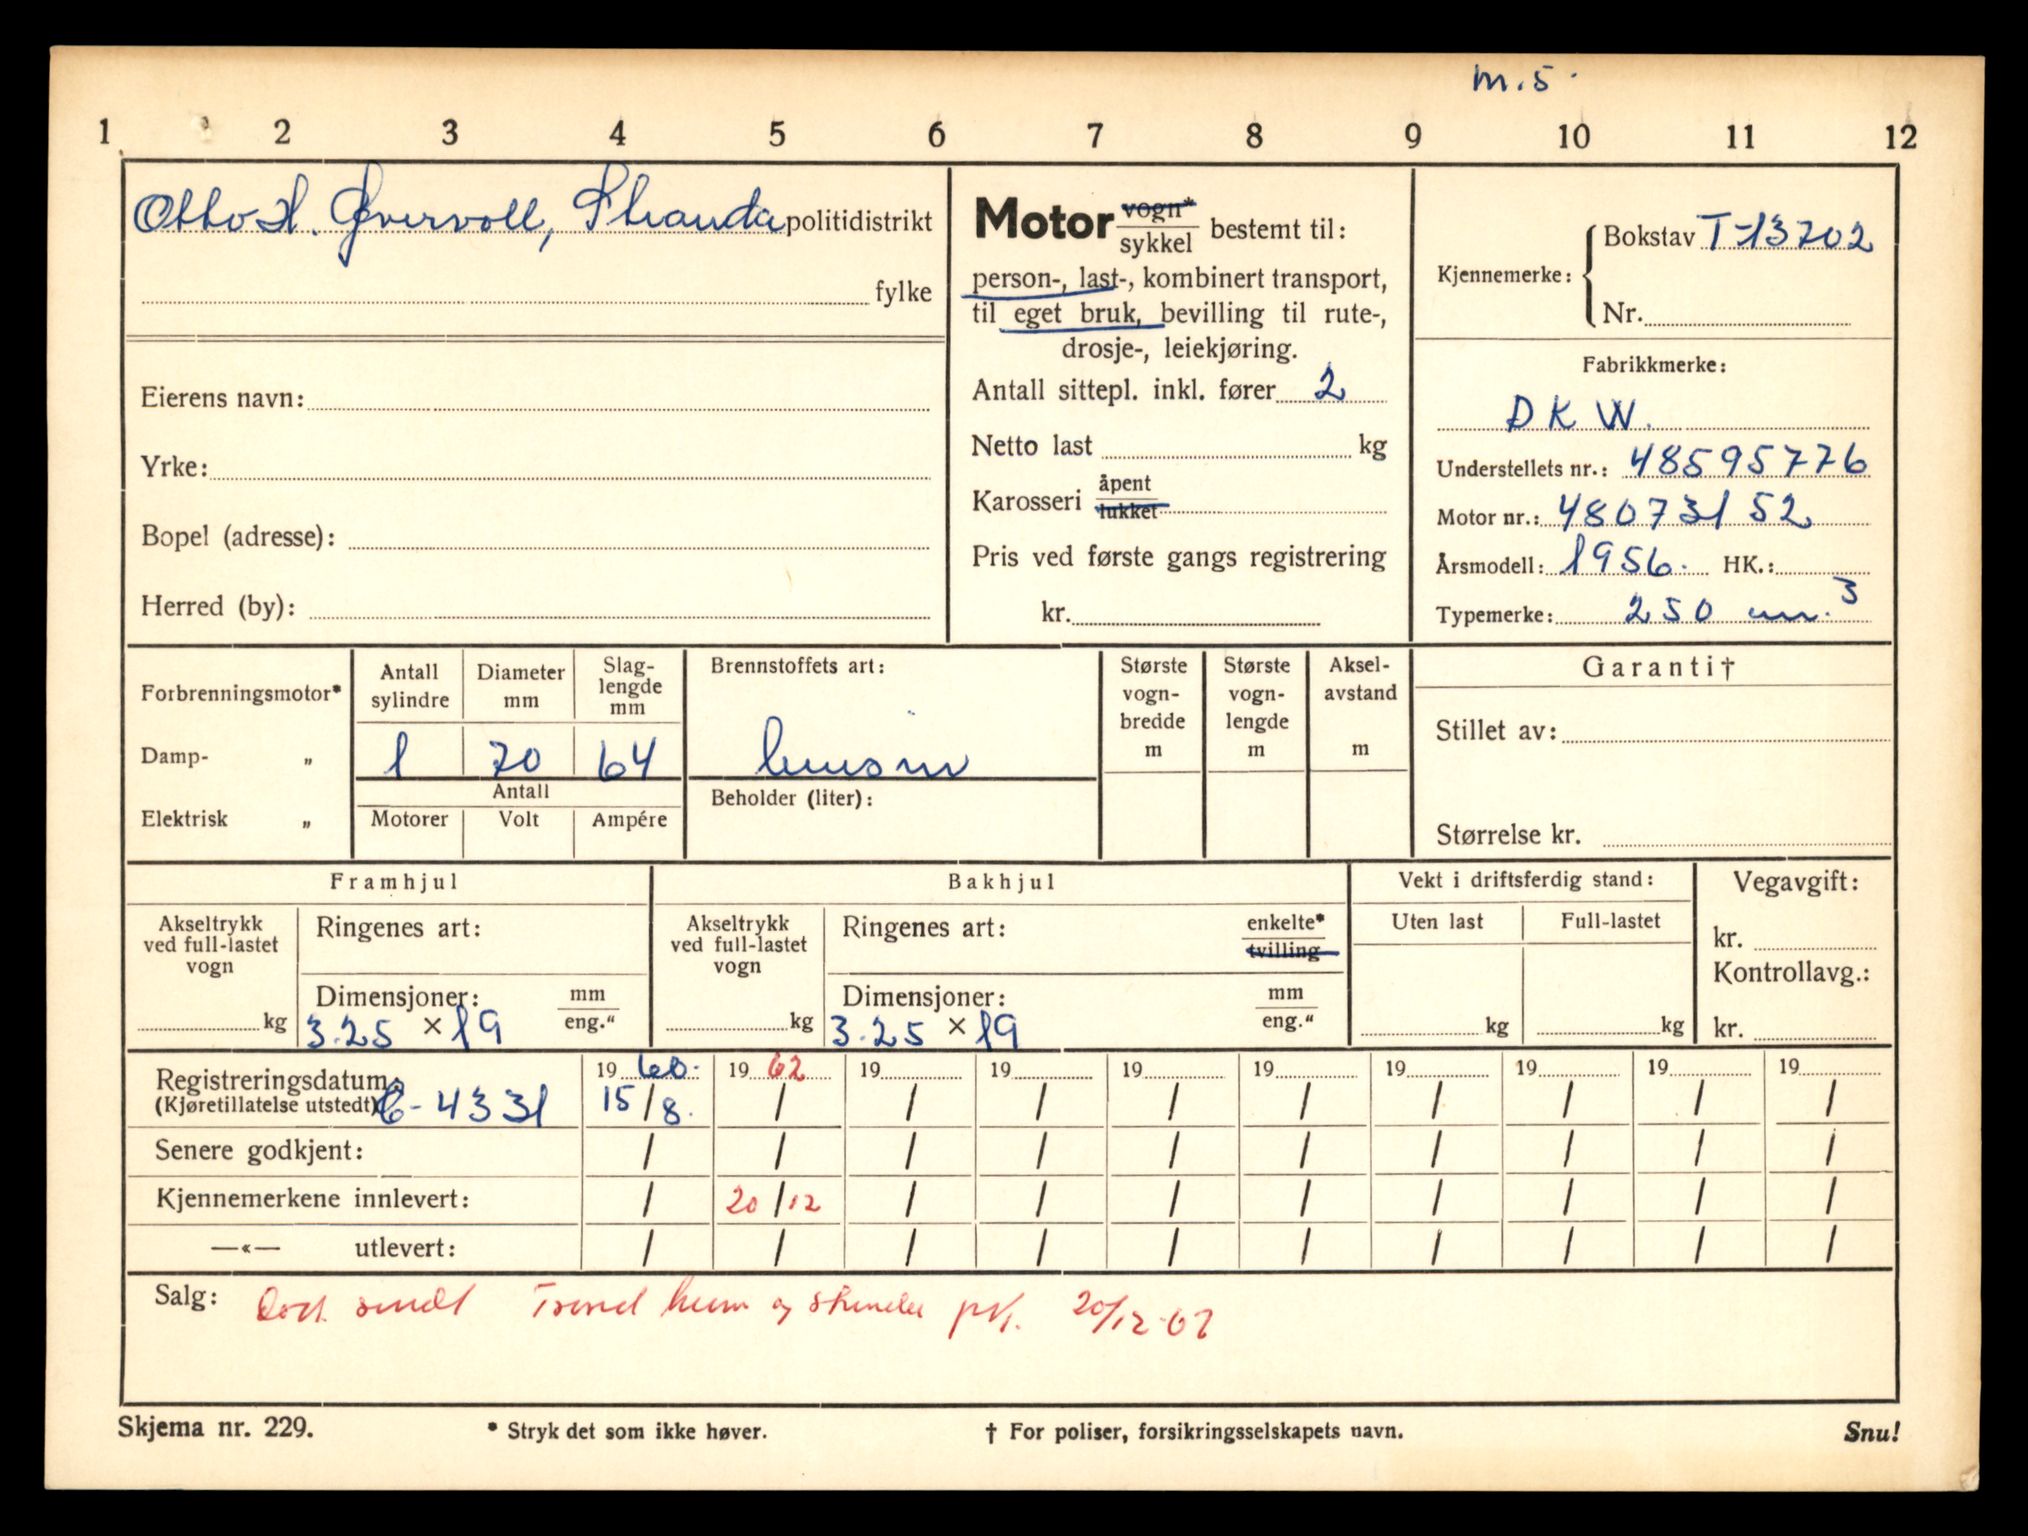 m.5.
1 2 3 4 5 6 7 8 9 10 11 12
Otto H. Øvervoll, Stranda politidistrikt
fylke
Eierens navn:
Yrke:
Bopel (adresse):
Herred (by):
Motor vogn* / sykkel bestemt til:
person-, last-, kombinert transport,
til eget bruk, bevilling til rute-,
drosje-, leiekjøring.
Antall sittepl. inkl. fører 2
Netto last kg
Karosseri åpent / lukket
Pris ved første gangs registrering
kr.
Kjennemerke: Bokstav T-13702
Nr.
Fabrikkmerke:
DKW.
Understellets nr.: 48595776
Motor nr.: 48073152
Årsmodell: 1956. HK.:
Typemerke: 250 cm.3
Forbrenningsmotor*
Damp- "
Elektrisk "
Antall sylindre Diameter mm Slag-lengde mm
1 70 64
Antall
Motorer Volt Ampére
Brennstoffets art:
bensin
Beholder (liter):
Største vogn-bredde m
Største vogn-lengde m
Aksel-avstand m
Garanti†
Stillet av:
Størrelse kr.
Framhjul
Akseltrykk ved full-lastet vogn
kg
Ringenes art:
Dimensjoner: mm / eng."
3.25 × 19
Bakhjul
Akseltrykk ved full-lastet vogn
kg
Ringenes art: enkelte* / tvilling
Dimensjoner: mm / eng."
3.25 × 19
Vekt i driftsferdig stand:
Uten last Full-lastet
kg kg
Vegavgift:
kr.
Kontrollavg.:
kr.
19 60. 19 62 19 19 19 19 19 19 19 19
Registreringsdatum:
(Kjøretillatelse utstedt) C-4331 15/8. / / / / / / / / /
Senere godkjent: / / / / / / / / / /
Kjennemerkene innlevert: / 20/12 / / / / / / / /
—«— utlevert: / / / / / / / / / /
Salg: sendt og 20/12-62
Skjema nr. 229. * Stryk det som ikke høver. † For poliser, forsikringsselskapets navn. Snu!